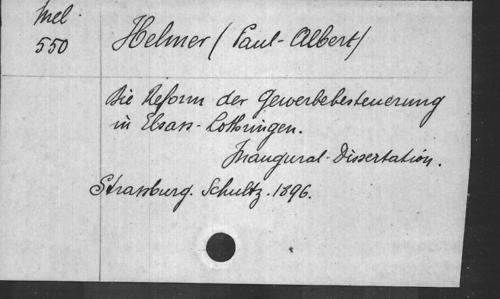 Mel
550
Helmer (Paul-Albert)
Die Reform der Gewerbebesteuerung
in Elsass-Lothringen.
Inaugural-Dissertation.
Strassburg. Schultz. 1896.